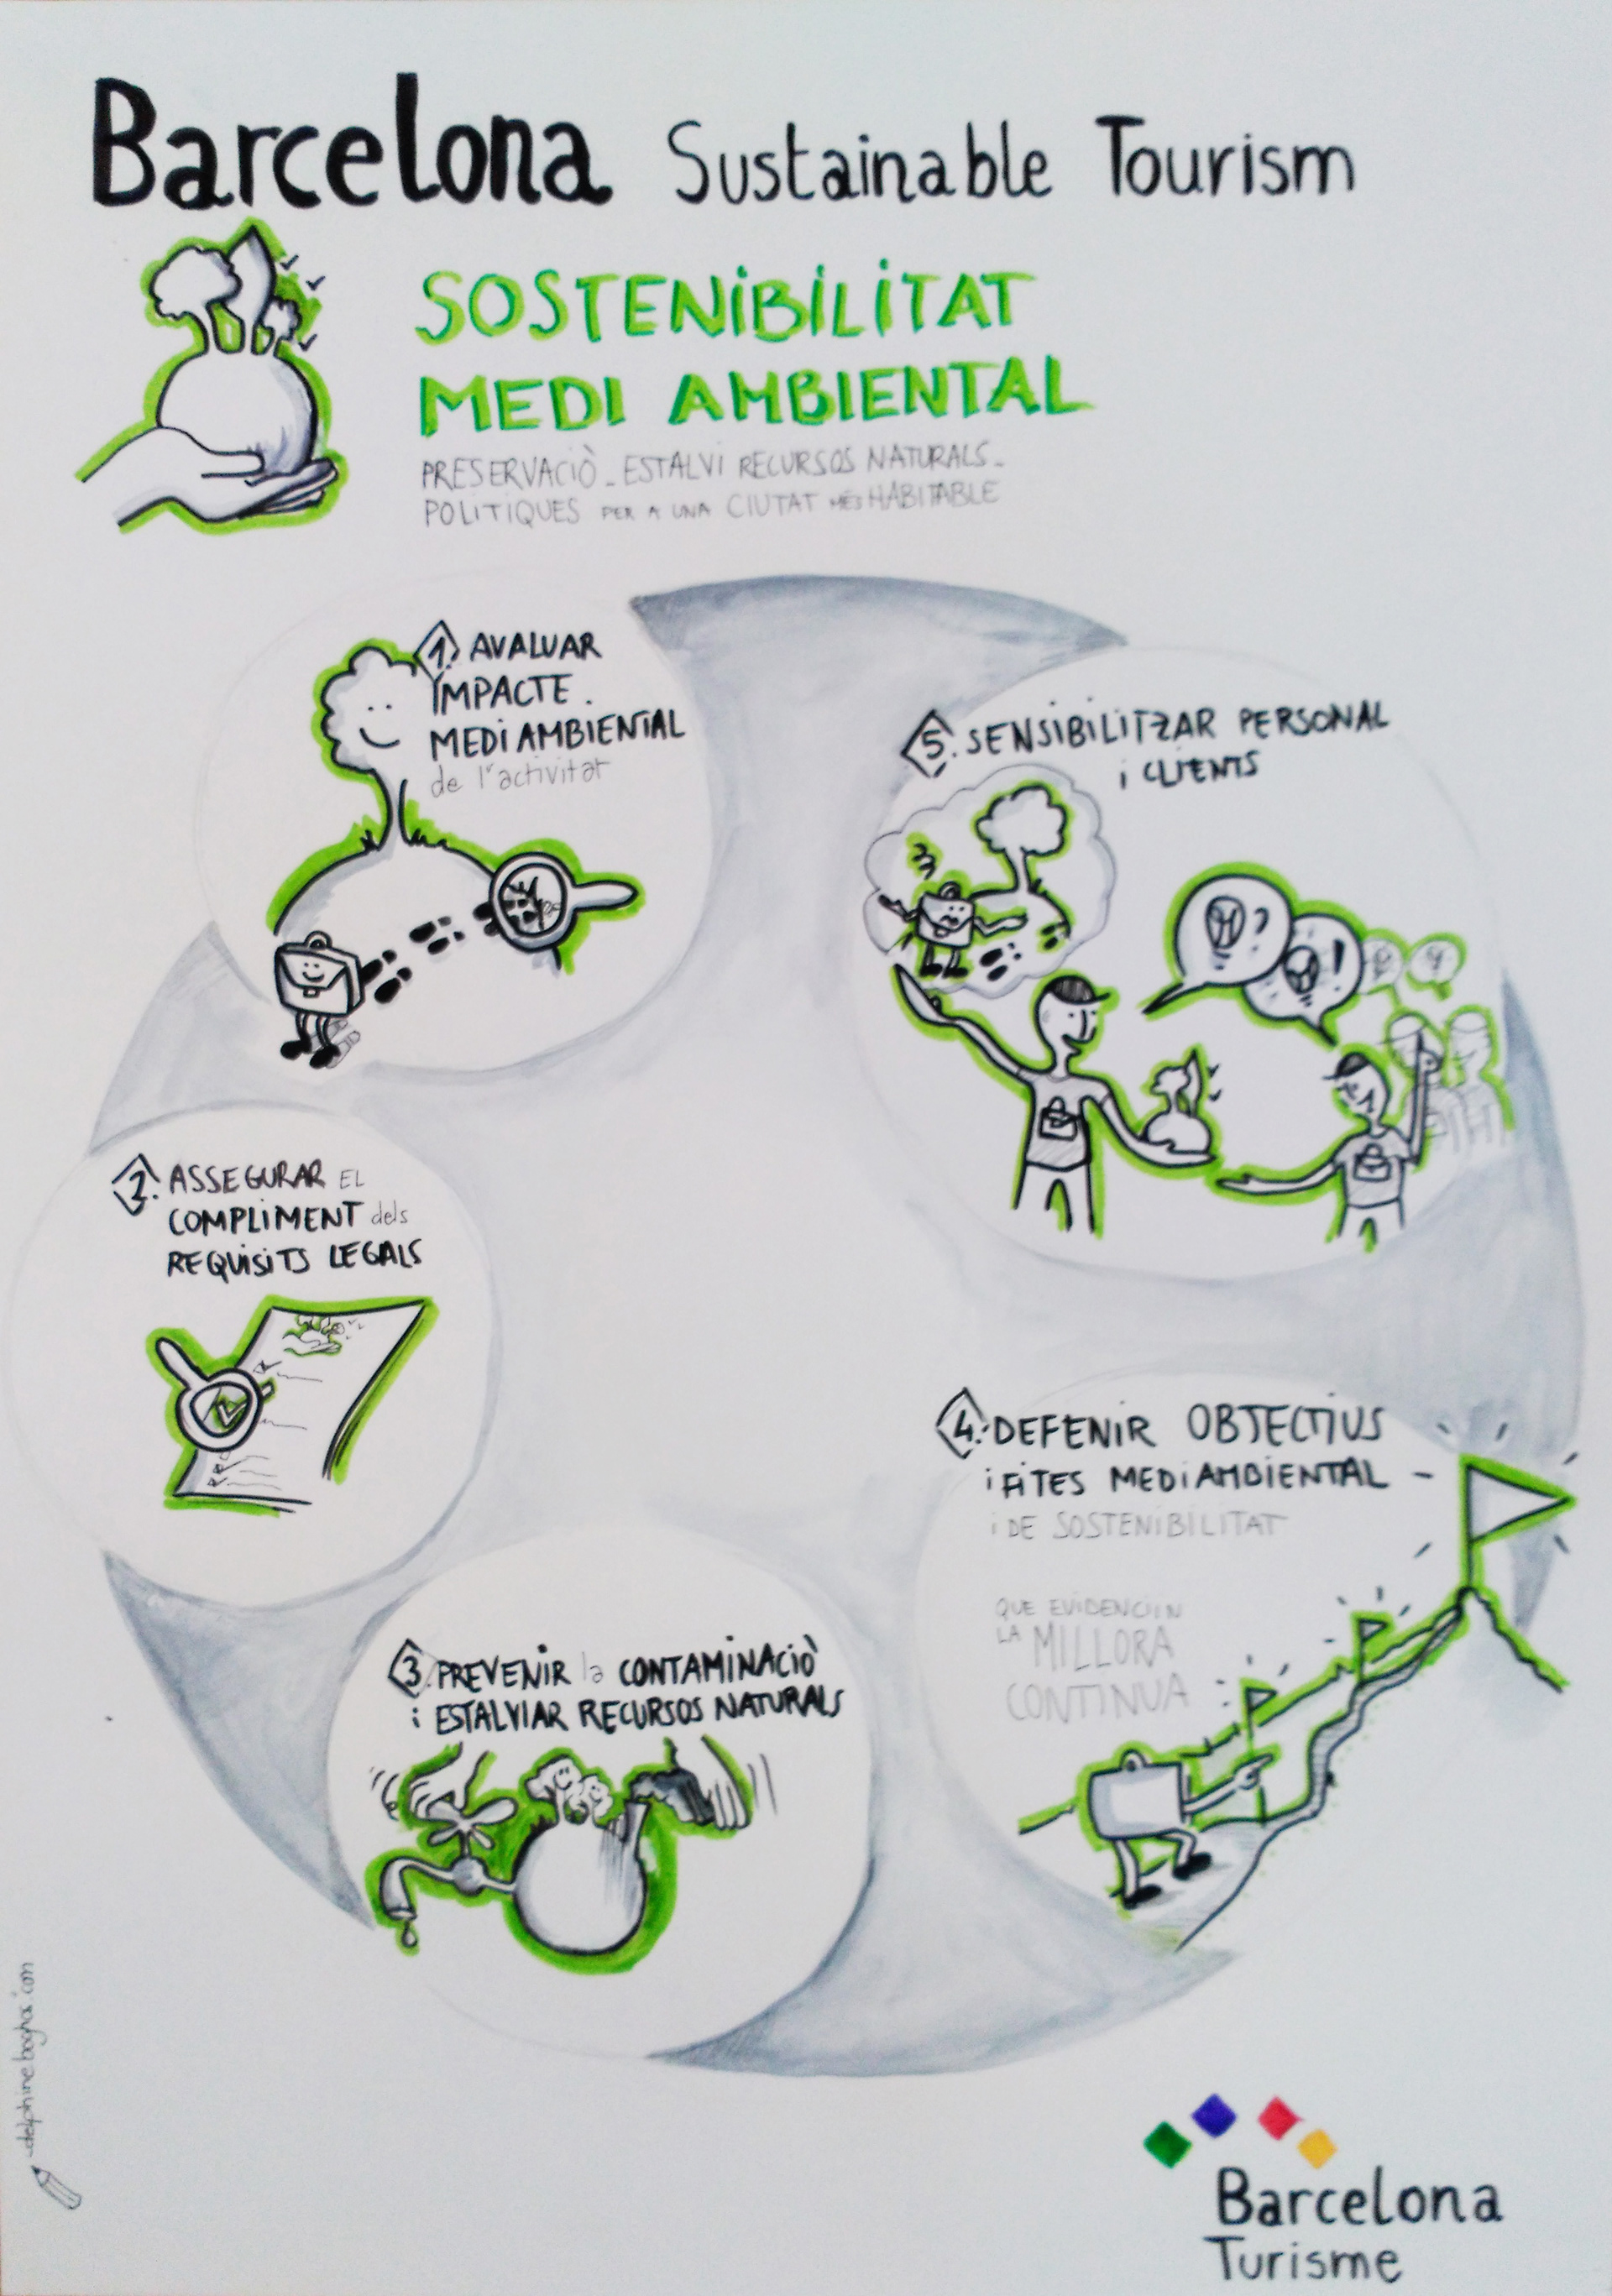 Barcelona Sustainable Tourism
SOSTENIBILITAT
MEDI AMBIENTAL
PRESERVACIÒ_ESTALVI RECURSOS NATURALS_
POLITIQUES PER A UNA CIUTAT MÉS HABITABLE
1. AVALUAR
IMPACTE.
MEDIAMBIENTAL
de l'activitat
2. ASSEGURAR EL
COMPLIMENT dels
REQUISITS LEGALS
3. PREVENIR la CONTAMINACIÒ
i ESTALVIAR RECURSOS NATURALS
4. DEFENIR OBJECTIUS
i FITES MEDIAMBIENTAL
i DE SOSTENIBILITAT
QUE EVIDENCIIN
LA MILLORA
CONTINUA
5. SENSIBILITZAR PERSONAL
i CLIENTS
?
!
-delphineboghos.com
Barcelona
Turisme